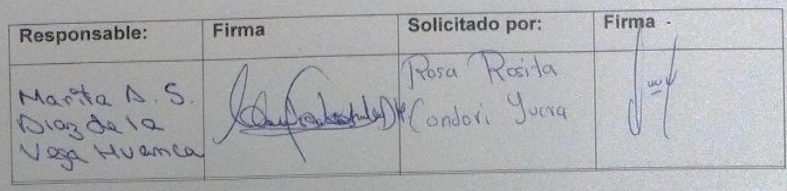 Responsable: Firma Solicitado por: Firma
Marita D. S.
Diaz de la
Vega Huanca
Rosa Rosita
Condori Yucra